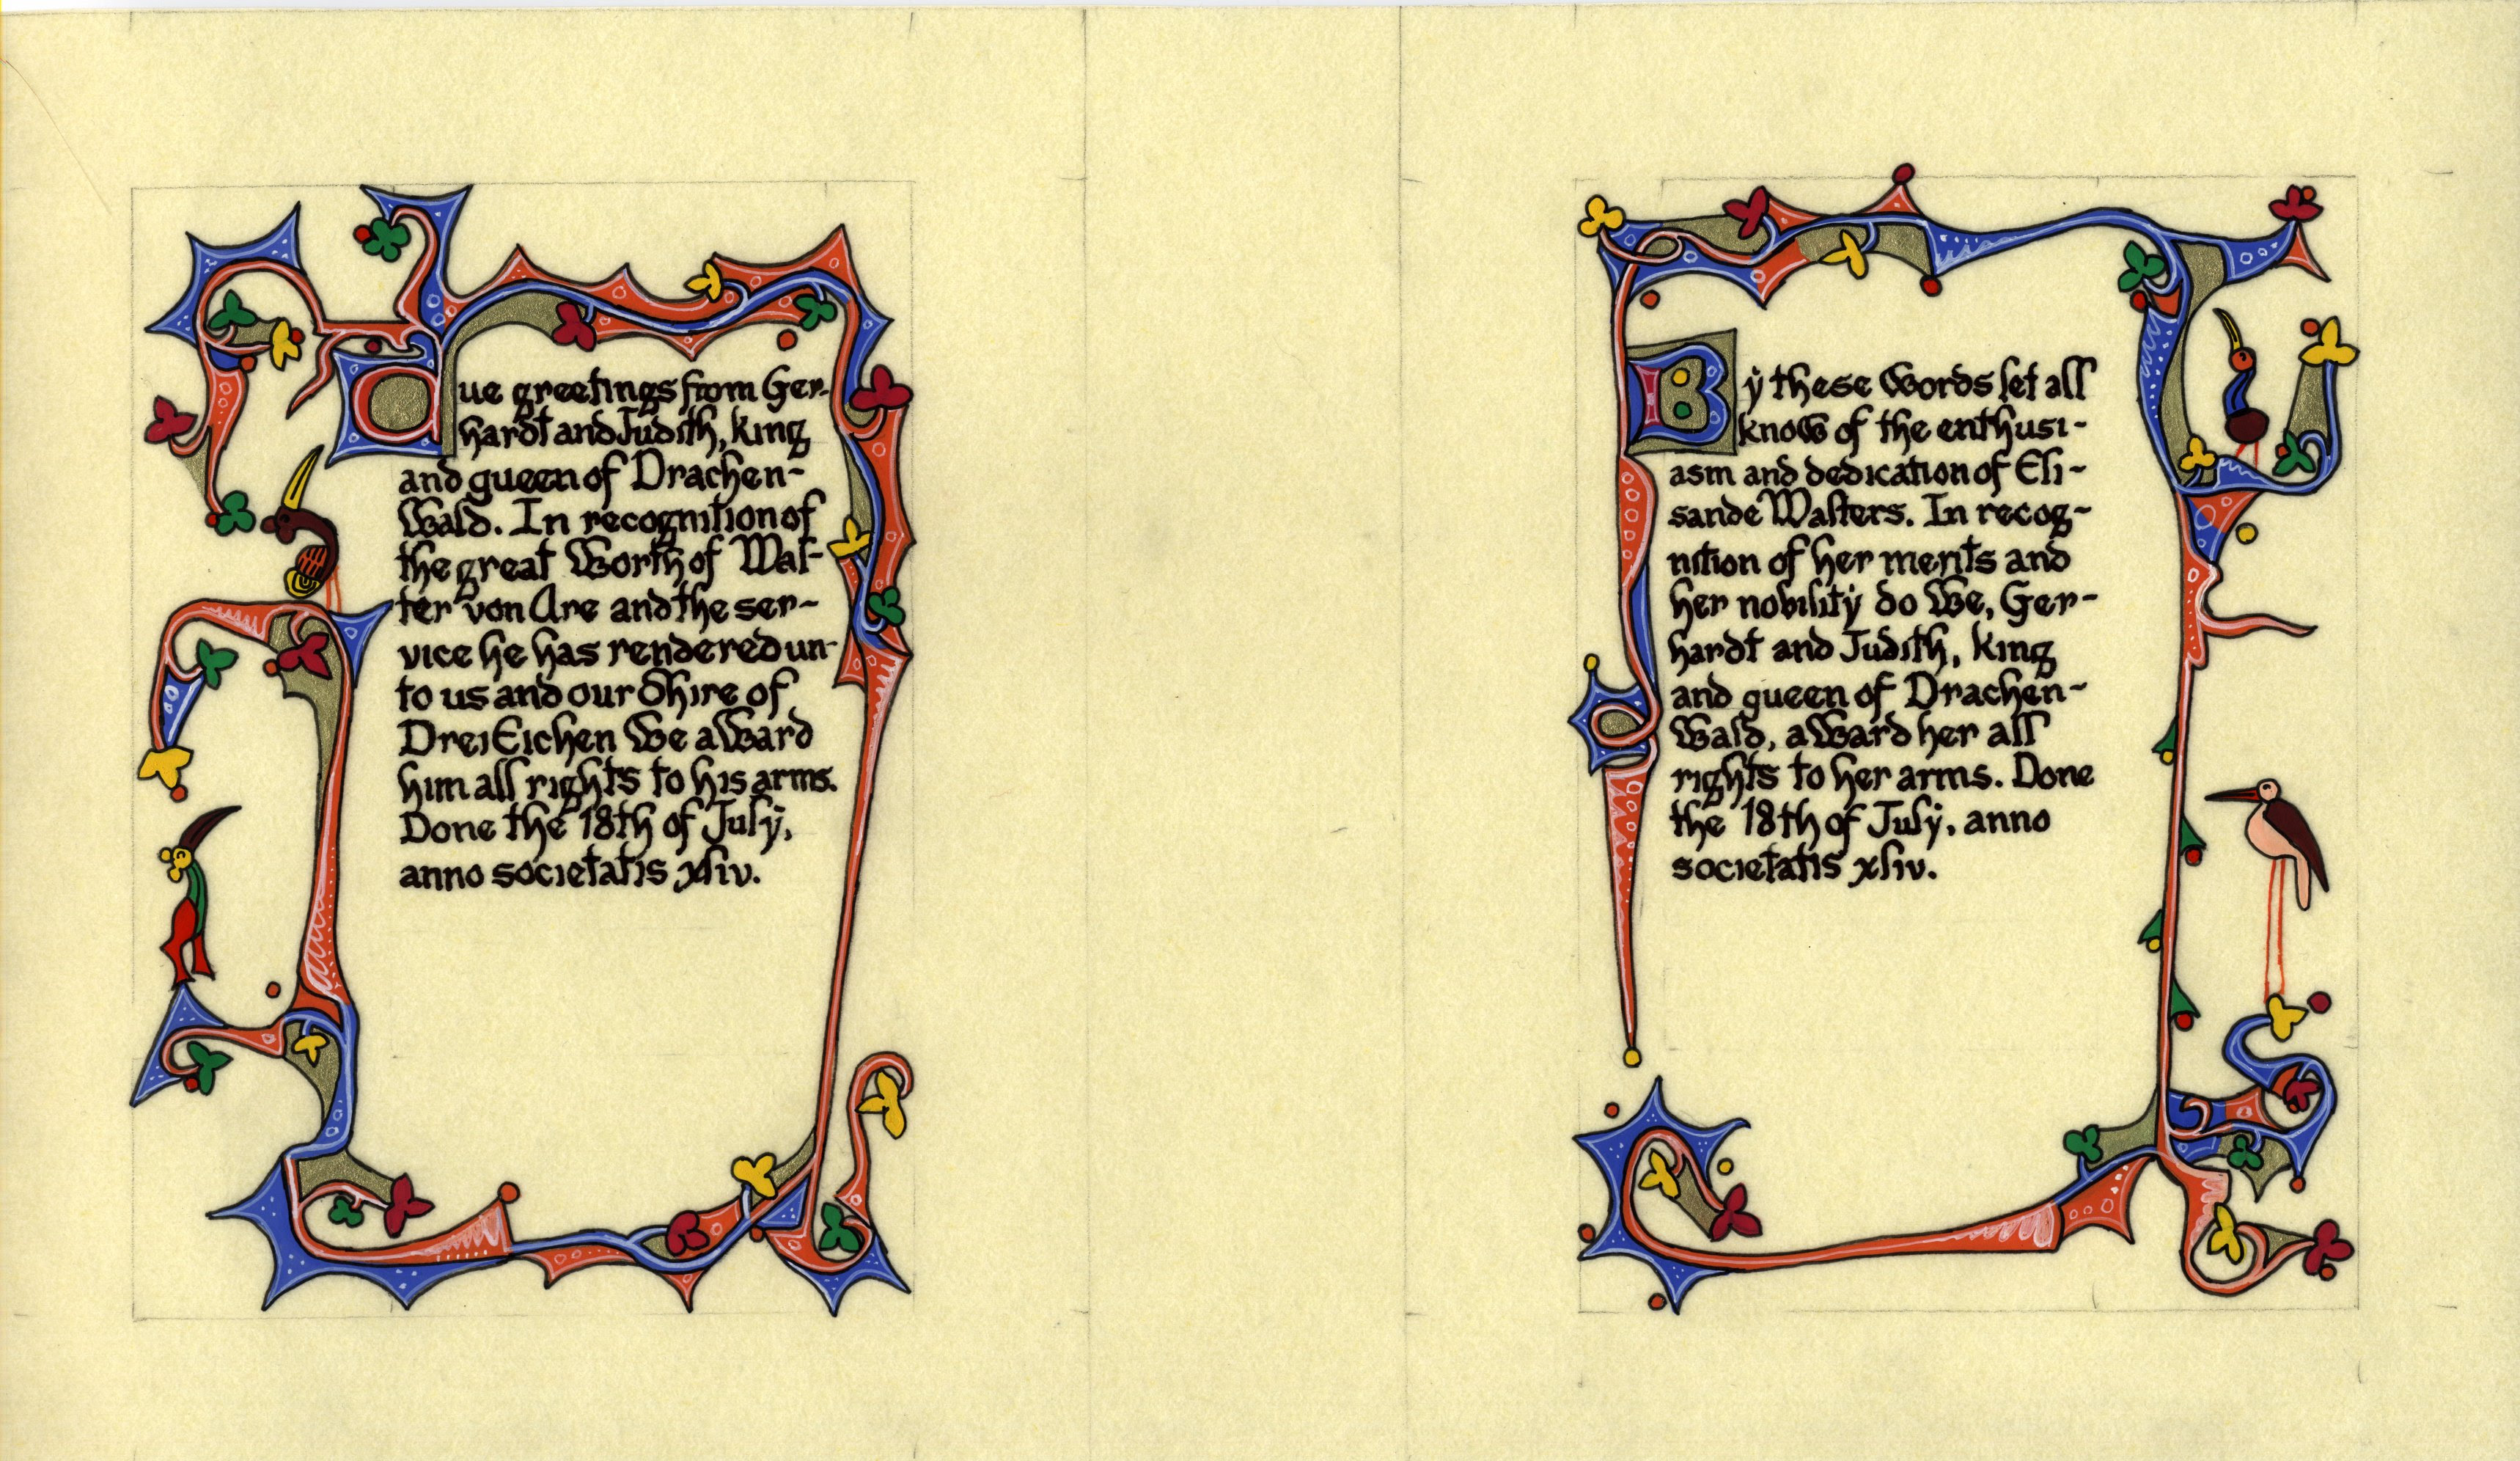 Due greetings from Ger-
hardt and Judith, king
and queen of Drachen-
wald. In recognition of
the great worth of Wal-
ter von Are and the ser-
vice he has rendered un-
to us and our Shire of
Drei Eichen we award
him all rights to his arms.
Done the 18th of July,
anno societatis xliv.
By these words let all
know of the enthusi-
asm and dedication of Eli-
sande Walters. In recog-
nition of her merits and
her nobility do we, Ger-
hardt and Judith, king
and queen of Drachen-
wald, award her all
rights to her arms. Done
the 18th of July, anno
societatis xliv.